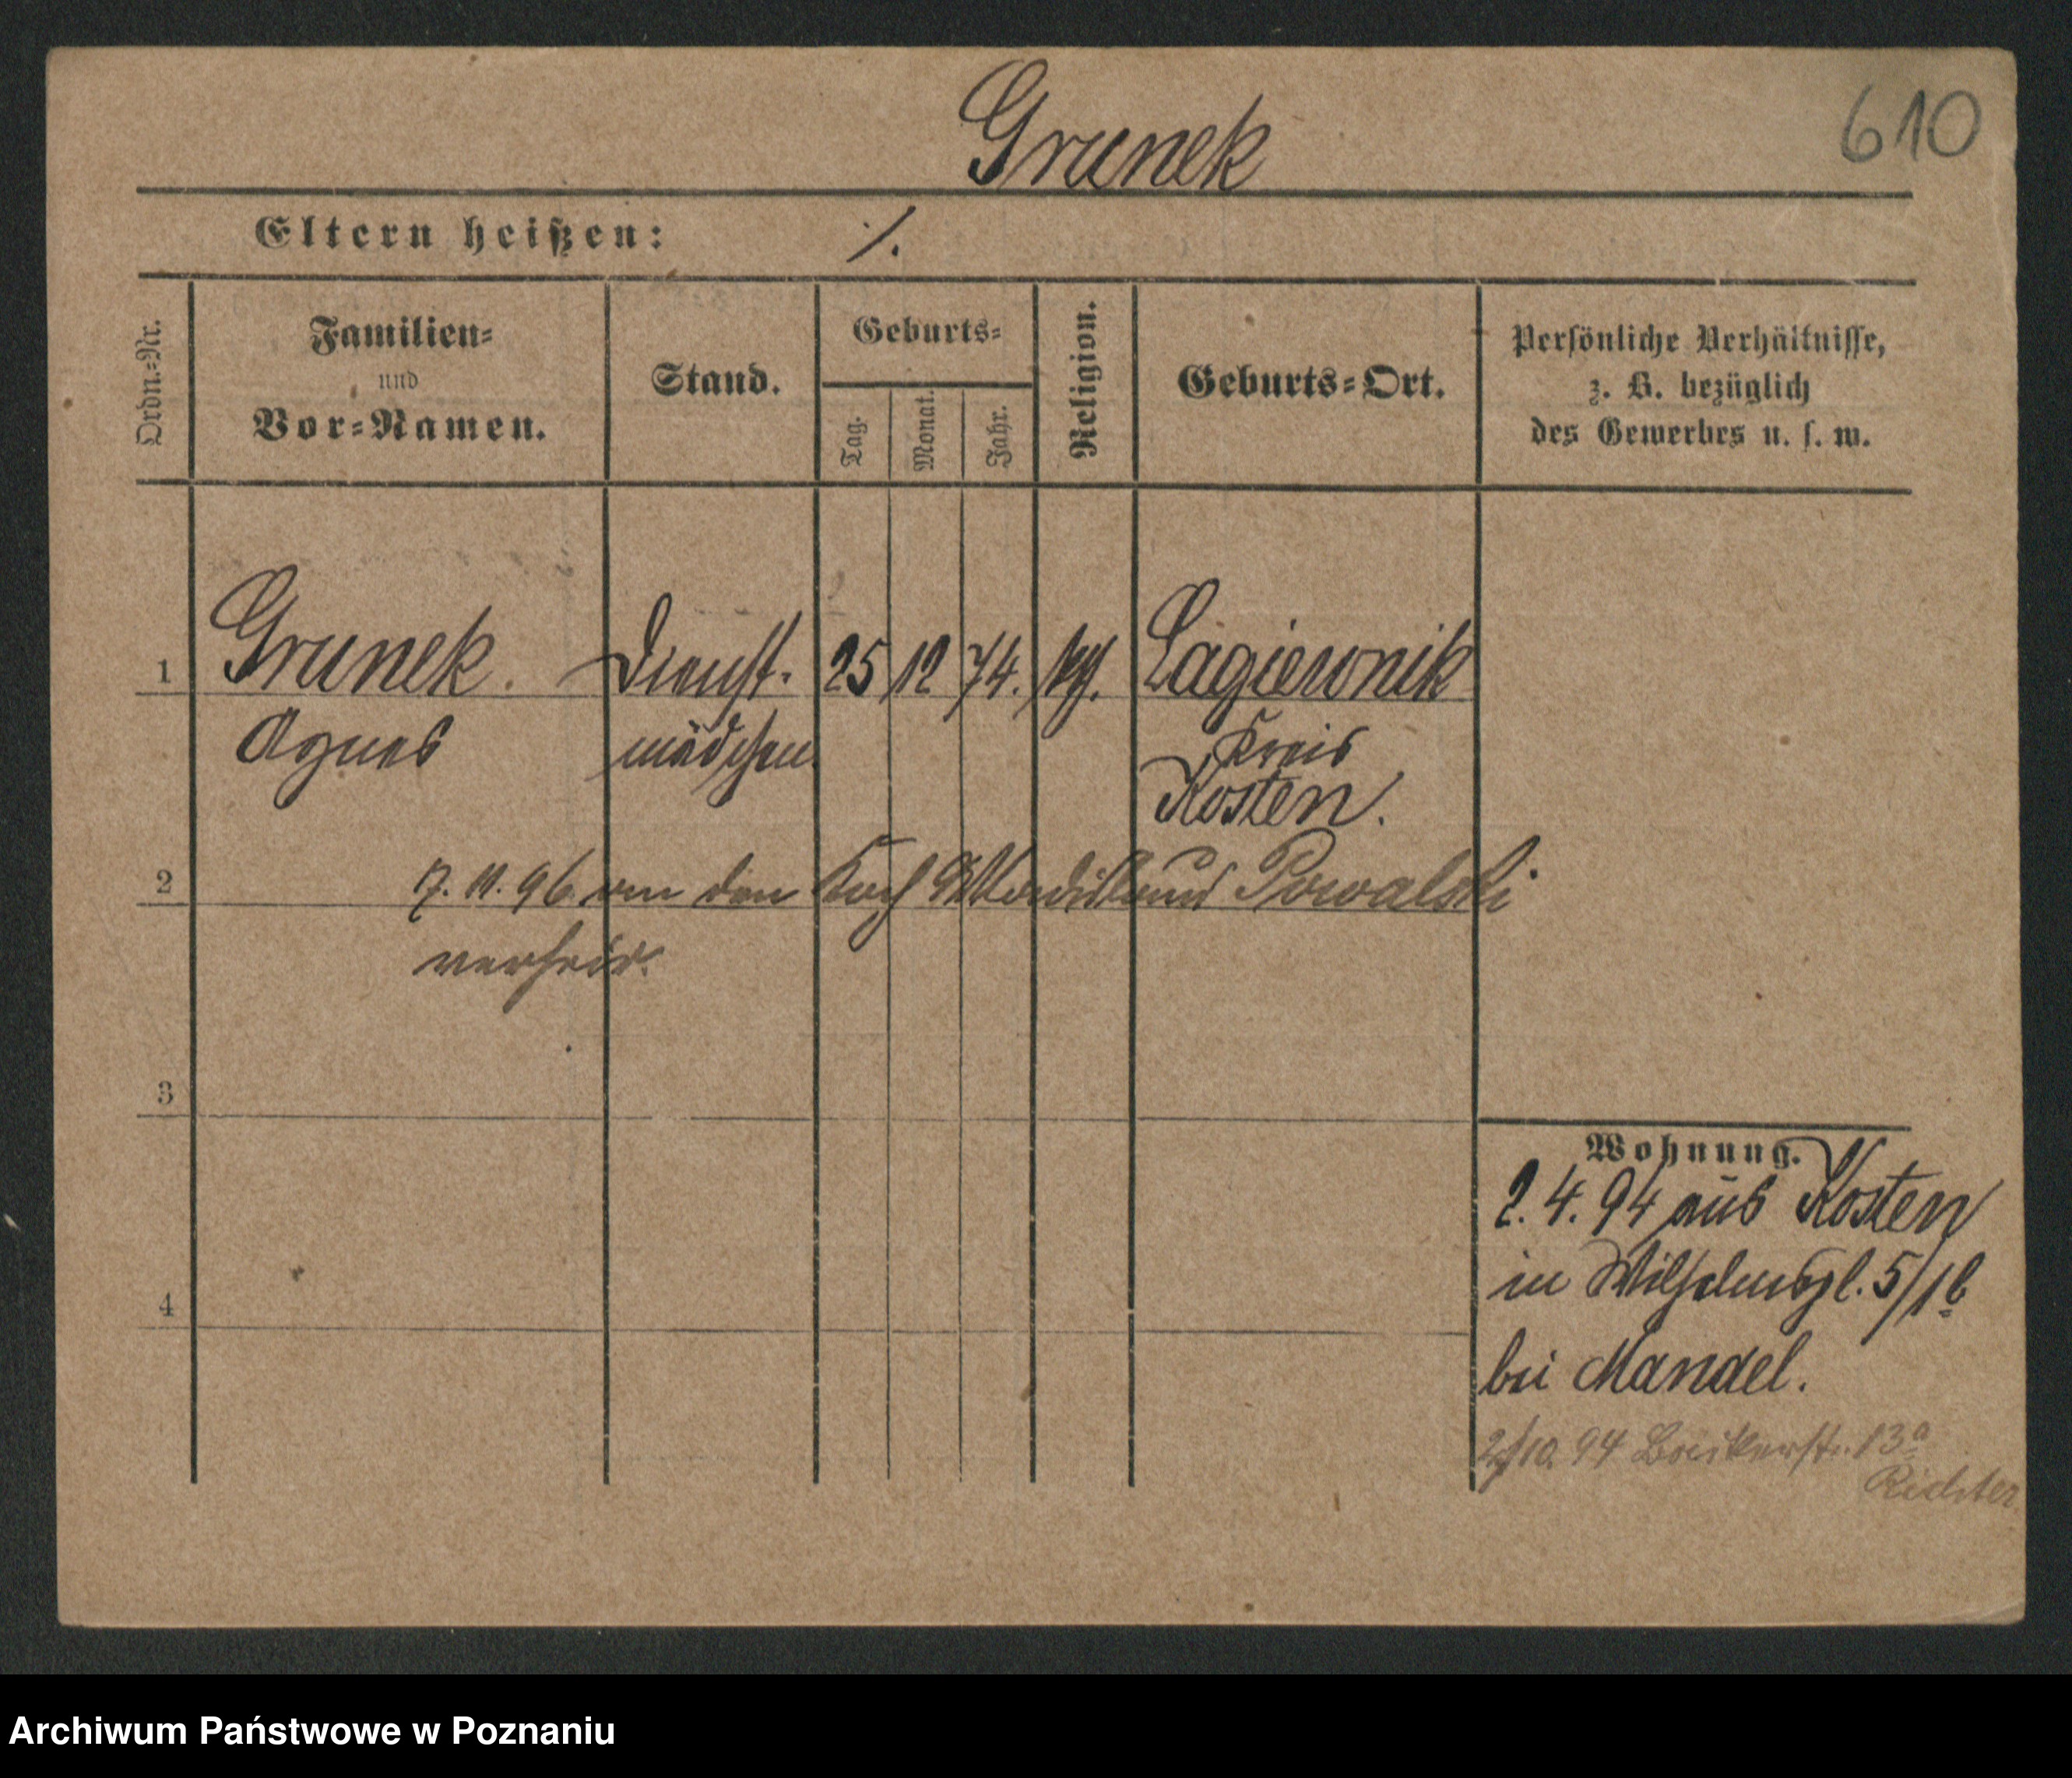 Grunek
610
Eltern heißen: ·/.
Ordn.-Nr.
Familien-
und
Vor-Namen.
Stand.
Geburts-
Tag.
Monat.
Jahr.
Religion.
Geburts-Ort.
Persönliche Verhältnisse,
z. B. bezüglich
des Gewerbes u. s. w.
1 Grunek. Dienst- 25 12 74. kth. Lagiewnik
Agnes mädchen Kreis
Kosten.
2 17. 11. 96. an den Koch Powalski
verheir.
3
4
Wohnung.
2. 4. 94 aus Kosten
in Wilhelmspl. 5/1b
bei Mandel.
2/10. 94 Baeckerstr. 13a
Richter
Archiwum Państwowe w Poznaniu